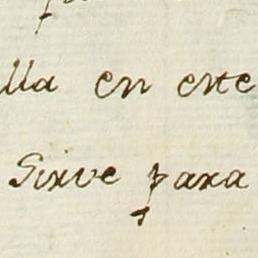 lla en este
Sirve para